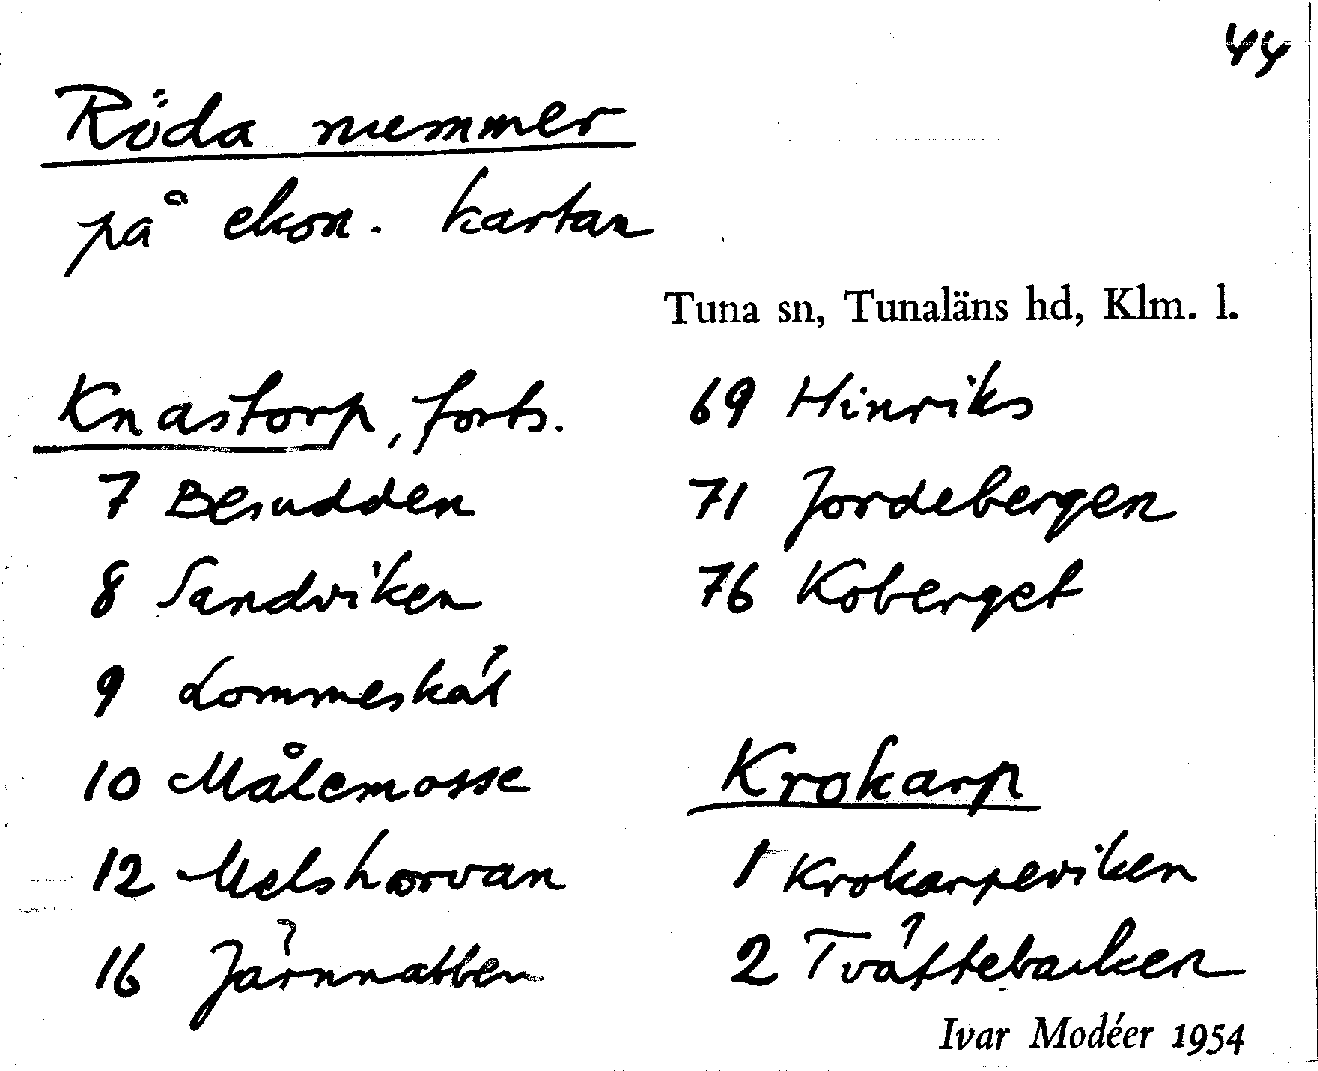 44
Röda nummer
på ekon. kartan
Tuna sn, Tunaläns hd, Klm. l.
Knastorp, forts.
7 Besudden
8 Sandviken
9 Lommeskär
10 Målemosse
12 Melshorvan
16 Järnnabben
69 Hinriks
71 Jordebergen
76 Koberget
Krokarp
1 Krokarpeviken
2 Tvättebacken
Ivar Modéer 1954